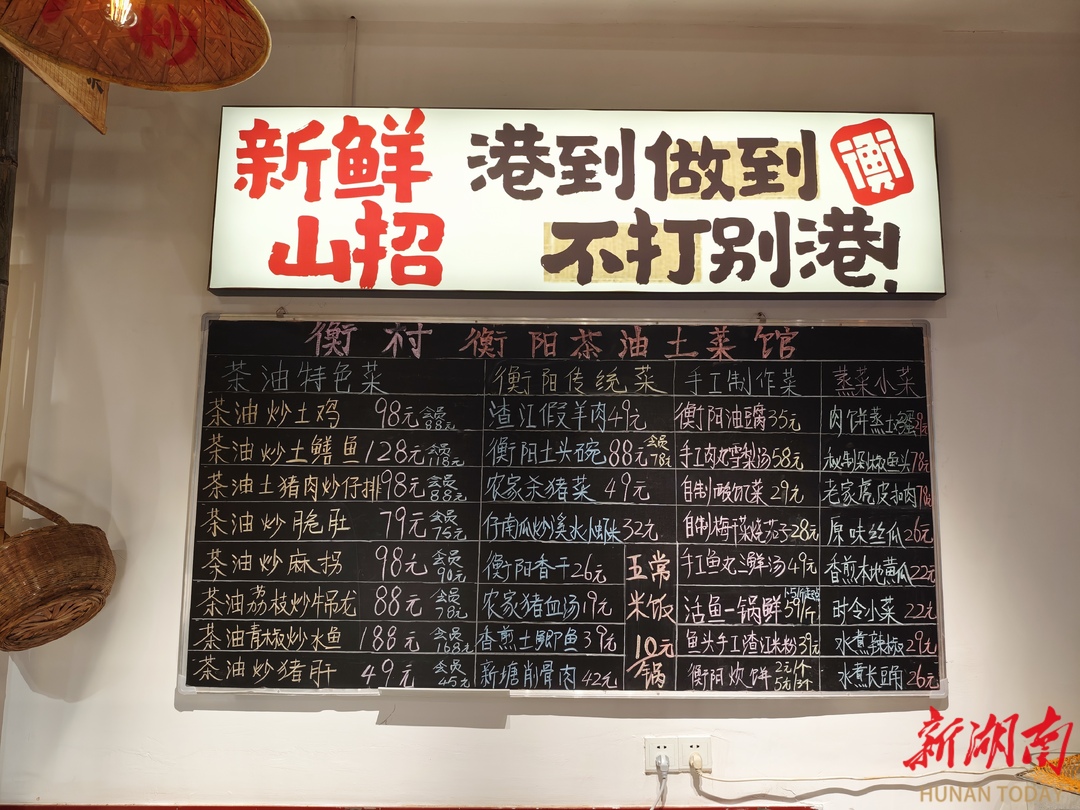 新鲜 港到做到 衡
山招 不打别港！
衡村 衡阳茶油土菜馆
茶油特色菜 衡阳传统菜 手工制作菜 蒸菜小菜
茶油炒土鸡 98元 会员88元 渣江假羊肉49元 衡阳油豆腐35元 肉饼蒸土鳝
茶油炒土鳝鱼 128元 会员118元 衡阳土头碗88元 会员78元 手工肉丸雪梨汤58元 秘制剁椒鱼头78元
茶油土猪肉炒仔排98元 会员88元 农家杀猪菜 49元 自制酸菜29元 老家虎皮扣肉78元
茶油炒脆肚 79元 会员75元 仔南瓜炒溪水 32元 自制梅干菜烧茄子28元 原味丝瓜26元
茶油炒麻拐 98元 会员90元 衡阳香干26元 手工鱼丸三鲜汤49元 香煎本地黄瓜22元
茶油荔枝炒牛吊龙 88元 会员78元 农家猪血汤19元 活鱼一锅鲜59/斤 时令小菜 22元
茶油青椒炒水鱼 188元 会员168元 香煎土鲫鱼39元 鱼头手工渣江米粉39元 水煮辣椒29元
茶油炒猪肝 49元 会员45元 新塘削骨肉42元 衡阳炊饼 2元/个 5元/3个 水煮长豆角26元
五常
米饭
10元
锅
新湖南
HUNAN TODAY